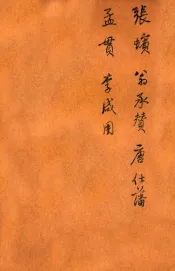 張蠙 翁承贊 唐仕藩
孟貫 李咸用